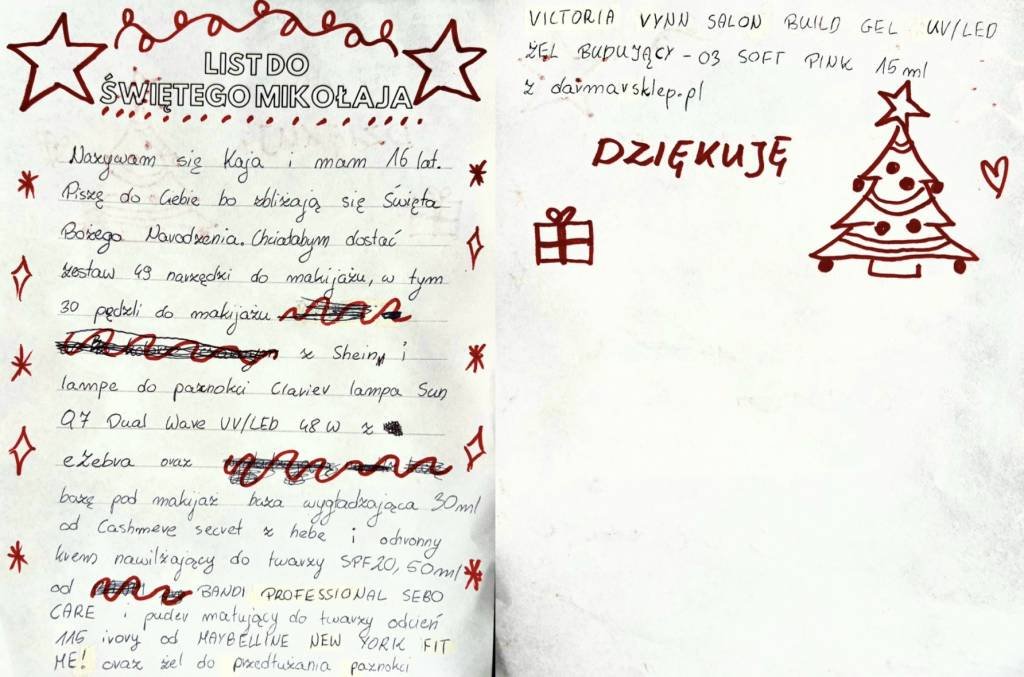 LIST DO
ŚWIĘTEGO MIKOŁAJA
Nazywam się Kaja i mam 16 lat.
Piszę do Ciebie bo zbliżają się Święta
Bożego Narodzenia. Chciałabym dostać
zestaw 49 narzędzi do makijażu, w tym
30 pędzli do makijażu
z Shein, i
lampe do paznokci Clavier lampa Sun
Q7 Dual Wave UV/LED 48 W z
eZebra oraz
bazę pod makijaż baza wygładzająca 30ml
od Cashmere secret z hebe i ochronny
krem nawilżający do twarzy SPF20, 50ml
od BANDI PROFESSIONAL SEBO
CARE i puder matujący do twarzy odcień
115 ivory od MAYBELLINE NEW YORK FIT
ME! oraz żel do przedłużania paznokci
VICTORIA VYNN SALON BUILD GEL UV/LED
ŻEL BUDUJĄCY - 03 SOFT PINK 15ml
z darmarsklep.pl
DZIĘKUJĘ